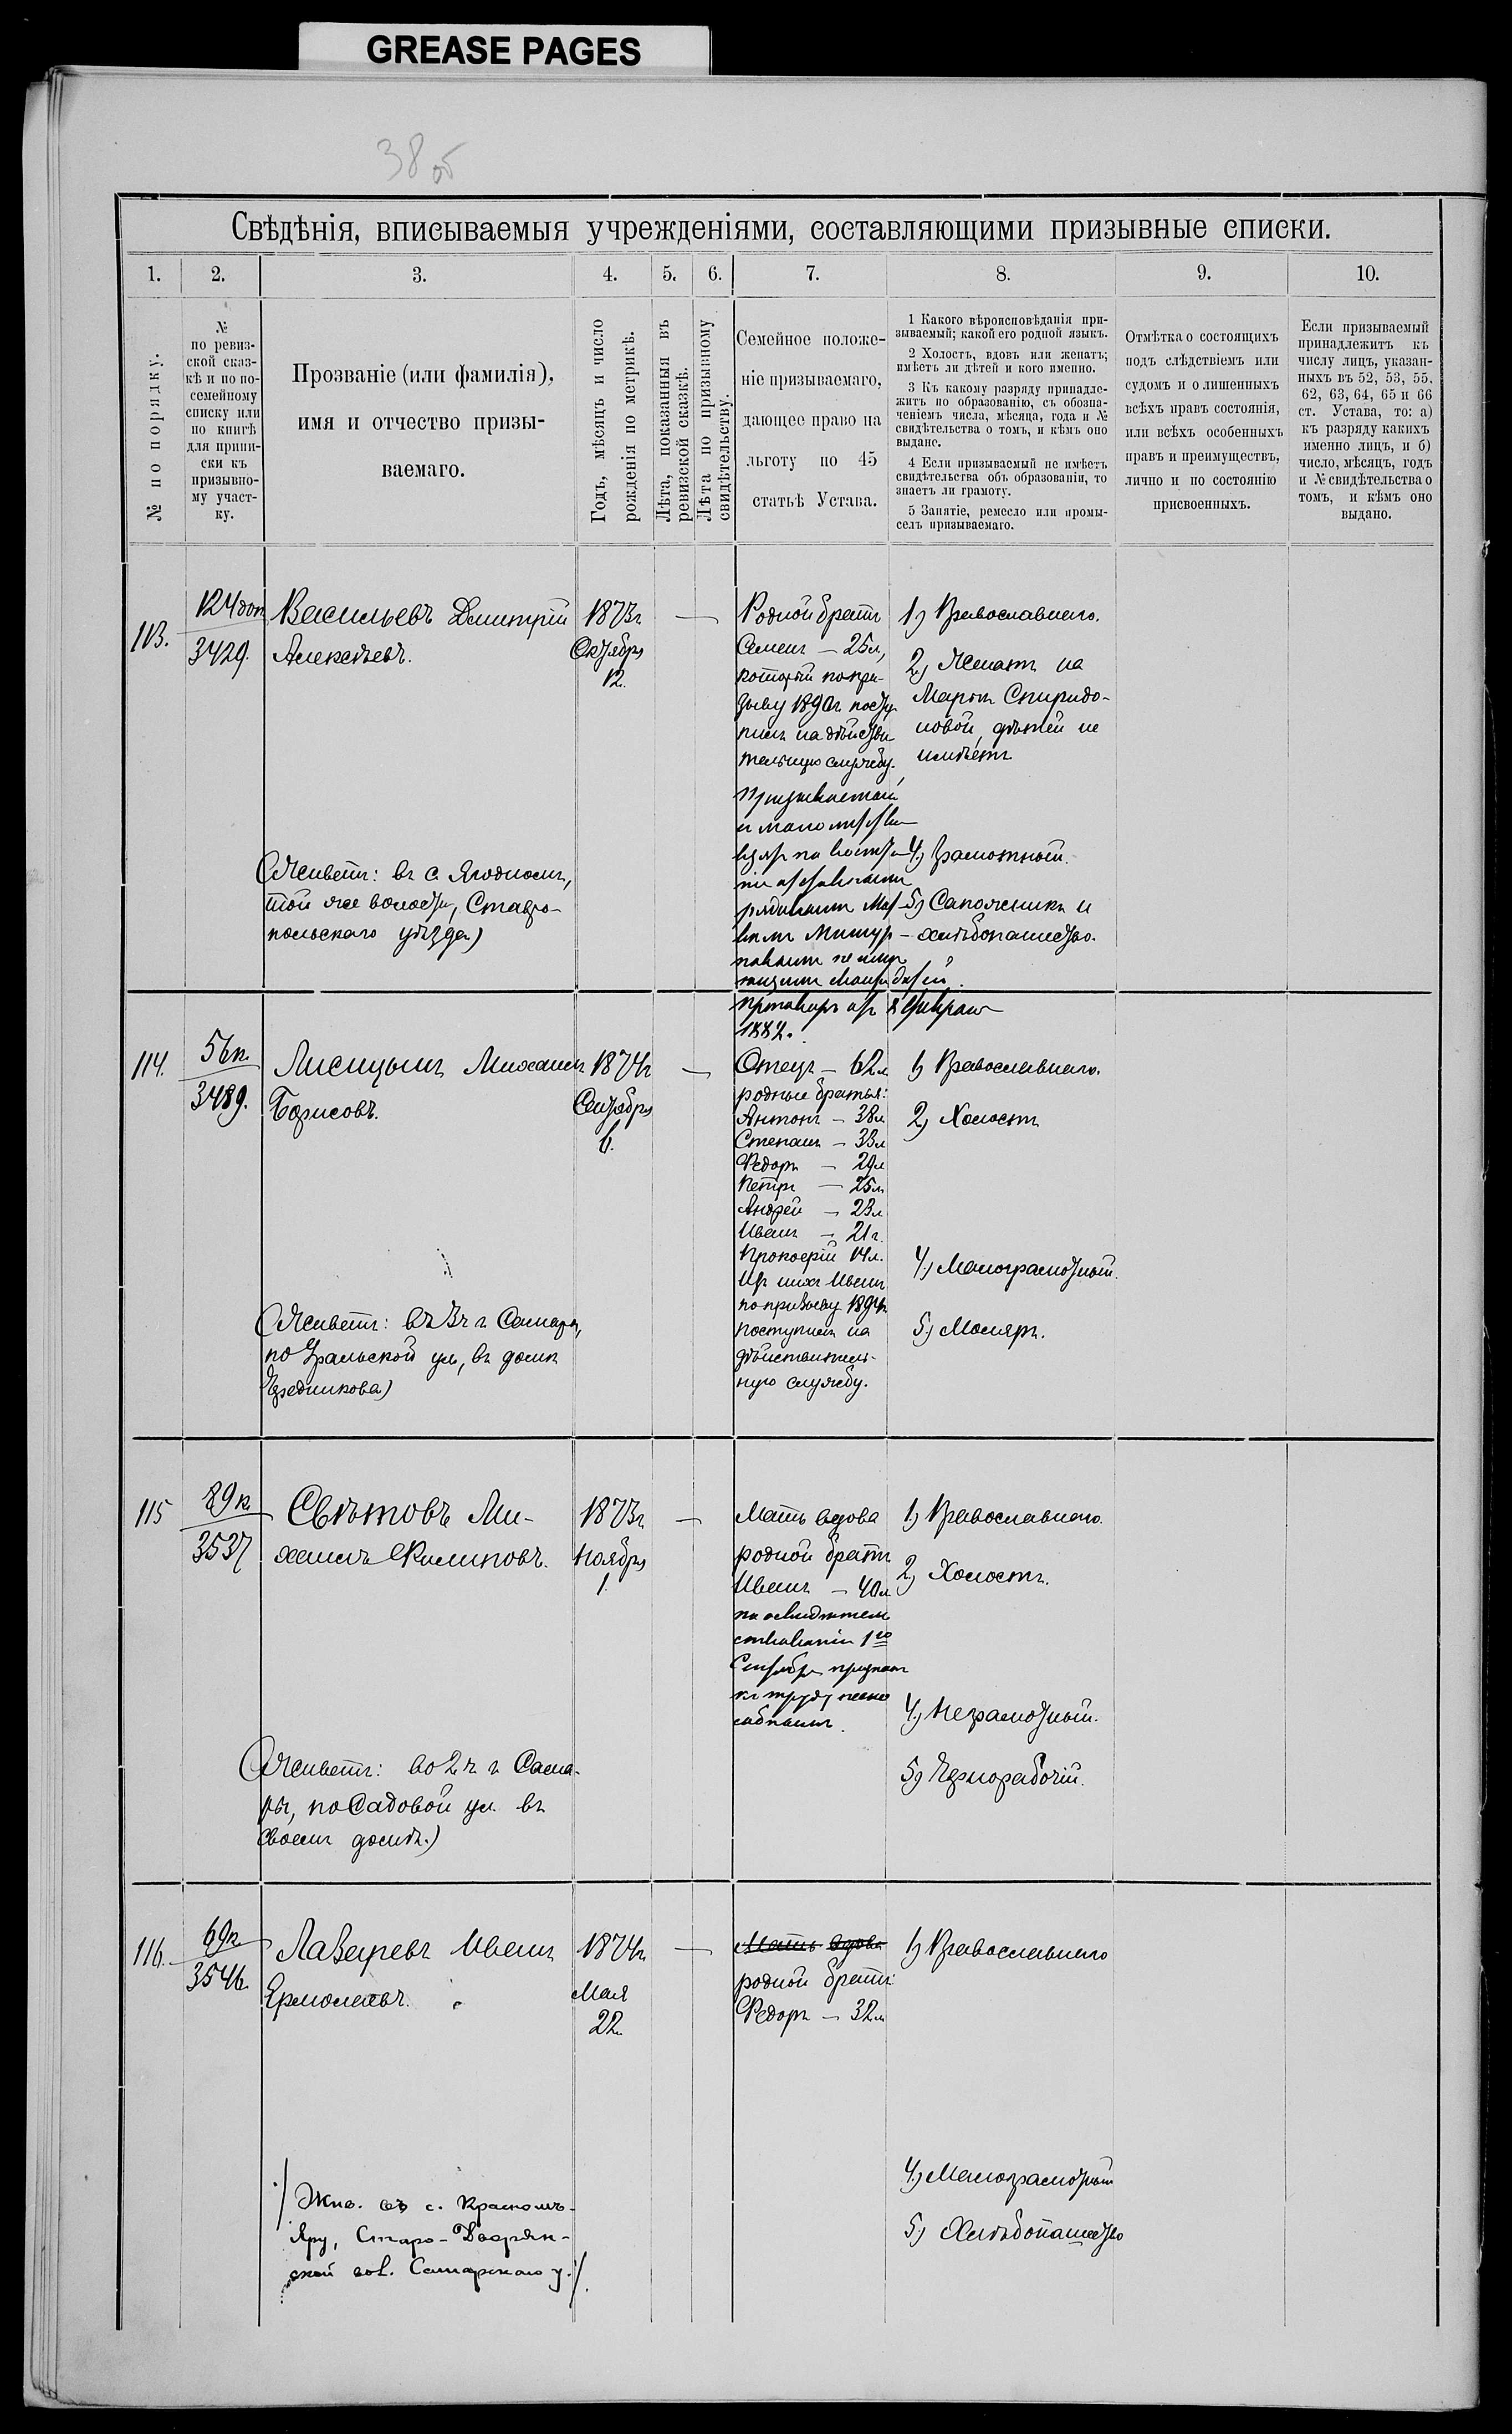 GREASE PAGES
38об
Свѣдѣнія, вписываемыя учрежденіями, составляющими призывные списки.
1. 2. 3. 4. 5. 6. 7. 8. 9. 10.
№ по порядку.
№
по ревиз-
ской сказ-
кѣ и по по-
семейному
списку или
по книгѣ
для припи-
ски къ
призывно-
му участ-
ку.
Прозваніе (или фамилія),
имя и отчество призы-
ваемаго.
Годъ, мѣсяцъ и число
рожденія по метрикѣ.
Лѣта, показанныя въ
ревизской сказкѣ.
Лѣта по призывному
свидѣтельству.
Семейное положе-
ніе призываемаго,
дающее право на
льготу по 45
статьѣ Устава.
1 Какого вѣроисповѣданія при-
зываемый; какой его родной языкъ.
2 Холостъ, вдовъ или женатъ;
имѣетъ ли дѣтей и кого именно.
3 Къ какому разряду принадле-
житъ по образованію, съ обозна-
ченіемъ числа, мѣсяца, года и №
свидѣтельства о томъ, и кѣмъ оно
выдано.
4 Если призываемый не имѣетъ
свидѣтельства объ образованіи, то
знаетъ ли грамоту.
5 Занятіе, ремесло или промы-
селъ призываемаго.
Отмѣтка о состоящихъ
подъ слѣдствіемъ или
судомъ и о лишенныхъ
всѣхъ правъ состоянія,
или всѣхъ особенныхъ
правъ и преимуществъ,
лично и по состоянію
присвоенныхъ.
Если призываемый
принадлежитъ къ
числу лицъ, указан-
ныхъ въ 52, 53, 55,
62, 63, 64, 65 и 66
ст. Устава, то: а)
къ разряду какихъ
именно лицъ, и б)
число, мѣсяцъ, годъ
и № свидѣтельства о
томъ, и кѣмъ оно
выдано.
113.
124 доп
3429.
Васильевъ Дмитрій
Алексѣевъ.
(Живетъ: въ с. Ягодномъ,
той же волости, Ставро-
польскаго уѣзда)
1873г
Октября
12.
—
Родной братъ
Семенъ — 25л,
который по при-
зыву 1890г посту
пилъ на дѣйстви
тельную службу.
Призываемый
отставнымъ
рядовымъ
8 Февраля
1882.
1) Православнаго.
2) Женатъ на
Марьѣ Спиридо-
новой, дѣтей не
имѣетъ
4) Грамотный.
5) Сапожникъ и
хлѣбопашество.
114.
56к.
3489.
Лисицынъ Михаилъ
Борисовъ.
(Живетъ: въ 3ч г Самары,
по Уральской ул, въ домѣ
Чередникова)
1874г
Сентября
6.
—
Отецъ — 62л
родные братья:
Антонъ — 38л
Степанъ — 33л
Федоръ — 29л
Петръ — 25л
Андрей — 23л
Иванъ — 21г.
Прокофій 14л.
Изъ нихъ Иванъ
по призыву 1894г
поступилъ на
дѣйствитель-
ную службу.
1) Православнаго.
2) Холостъ
4) Малограмотный.
5) Маляръ.
115
89к
3537
Свѣтовъ Ми-
хаилъ Филиповъ.
(Живетъ: во 2 ч г Сама-
ры, по Садовой ул. въ
своемъ домѣ.)
1873г
Ноября
1.
—
Мать вдова
родной братъ
Иванъ — 40л
по освидѣтель
ствованіи 1го
Сентября признанъ
къ труду неспо
собнымъ.
1) Православнаго.
2) Холостъ.
4) Неграмотный.
5) Чернорабочій.
116.
69к
3546.
Лазаревъ Иванъ
Ермолаевъ.
/Жив. въ с. Красномъ-
Яру, Старо-Дворян-
ской вол. Самарскаго у./.
1874г
Мая
22.
—
Мать вдова
родной братъ:
Федоръ — 32л
1) Православнаго
4) Малограмотный
5) Хлѣбопашество